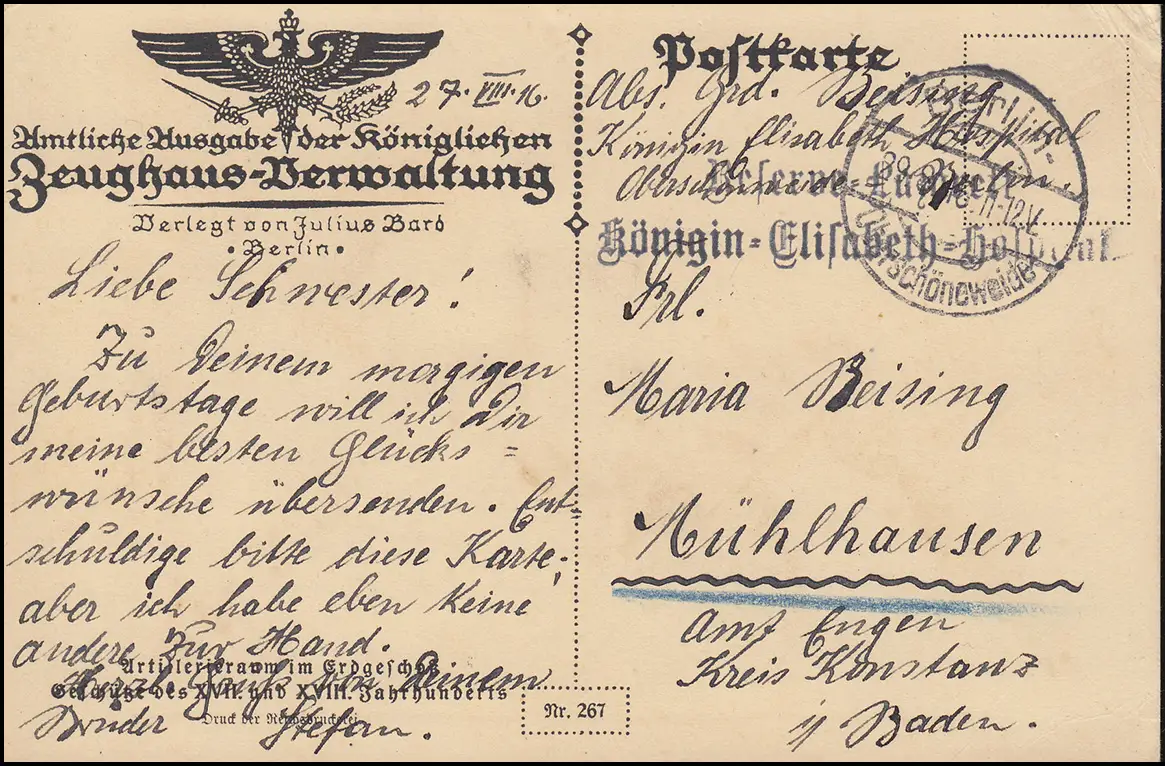 27. VIII. 16.
Amtliche Ausgabe der Königlichen
Zeughaus-Verwaltung
Verlegt von Julius Bard
• Berlin •
Liebe Schwester!
Zu Deinem morgigen
Geburtstage will ich Dir
meine besten Glücks=
wünsche übersenden. Ent-
schuldige bitte diese Karte,
aber ich habe eben keine
andere zur Hand.
Herzl. Gruß von Deinem
Bruder Stefan.
Artillerieraum im Erdgeschoß
Geschütze des XVII. und XVIII. Jahrhunderts
Druck der Reichsdruckerei
Nr. 267
Postkarte
Abs. Grd. Beising
Königin Elisabeth Hospital
Oberschöneweide
Reserve-Lazarett
Königin-Elisabeth-Hospital
Berlin-
11-12V.
Oberschöneweide
Frl.
Maria Beising
Mühlhausen
Amt Engen
Kreis Konstanz
i/ Baden.